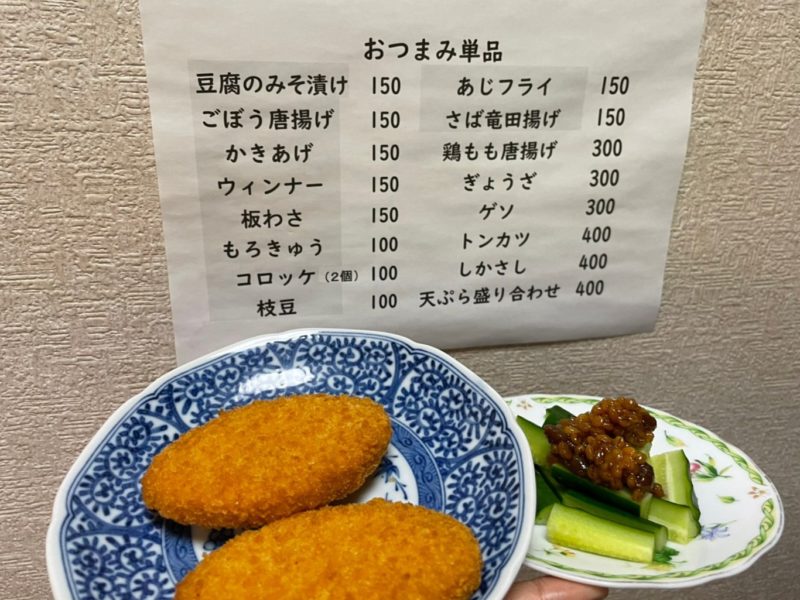 おつまみ単品
豆腐のみそ漬け 150
ごぼう唐揚げ 150
かきあげ 150
ウィンナー 150
板わさ 150
もろきゅう 100
コロッケ(2個) 100
枝豆 100
あじフライ 150
さば竜田揚げ 150
鶏もも唐揚げ 300
ぎょうざ 300
ゲソ 300
トンカツ 400
しかさし 400
天ぷら盛り合わせ 400